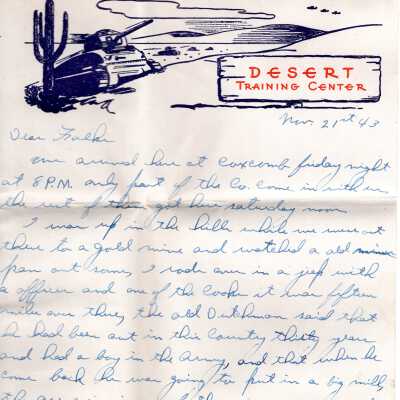 DESERT
TRAINING CENTER
Nov. 21st 43
Dear Folks
we arrived here at Coxcomb friday night
at 8 P.M. only part of the Co. come in with us
the rest of them got here saturday noon.
I was up in the hills while we were out
there to a gold mine and watched a old miner
pan out some, I rode over in a jeep with
a officer and one of the Cooks it was fifteen
miles over there, the old Dutchman said that
he had been out in this Country thirty years
and had a boy in the Army, and that when he
come back he was going to put in a big mill,